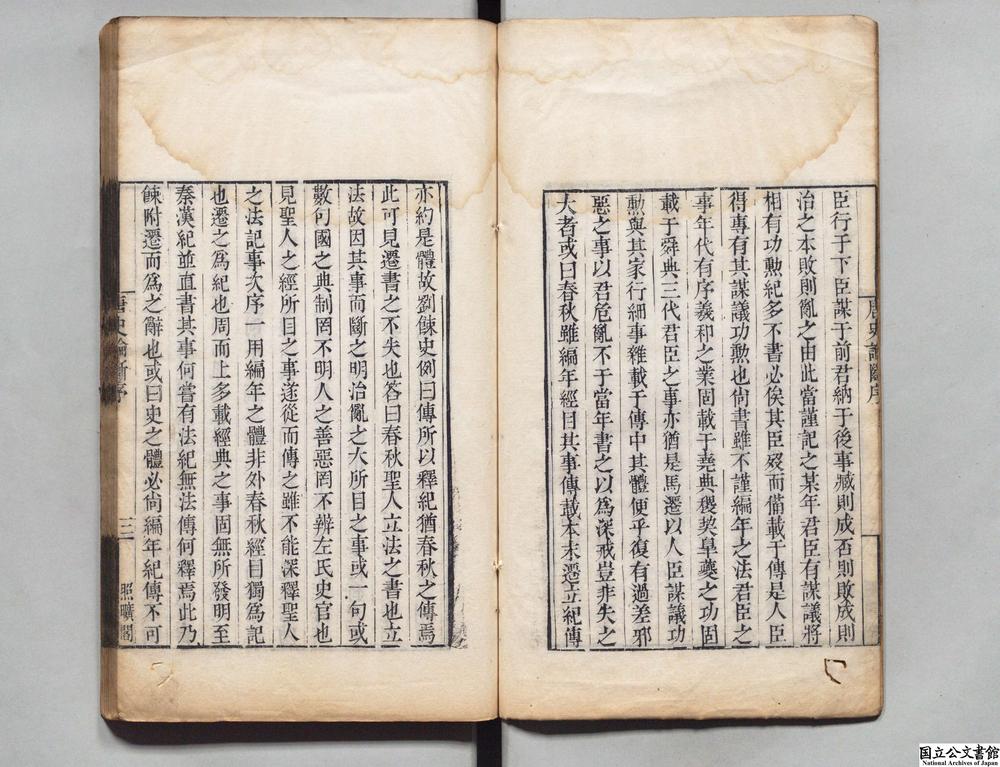 臣行于下臣謀于前君納于後事臧則成否則敗成則
治之本敗則亂之由此當謹記之某年君臣有謀議將
相有功勲紀多不書必俟其臣歿而備載于傳是人臣
得專有其謀議功勲也尙書雖不謹編年之法君臣之
事年代有序義和之業固載于堯典稷契臯夔之功固
載于舜典三代君臣之事亦猶是馬遷以人臣謀議功
勲與其家行細事雜載于傳中其體便乎復有過差邪
惡之事以召危亂不于當年書之以爲深戒豈非失之
大者或曰春秋雖編年經目其事傳載本末遷立紀傳
唐史論斷序
亦約是體故劉餗史例曰傳所以釋紀猶春秋之傳焉
此可見遷書之不失也答曰春秋聖人立法之書也立
法故因其事而斷之明治亂之大所目之事或一句或
數句國之典制罔不明人之善惡罔不辨左氏史官也
見聖人之經所目之事遂從而傳之雖不能深釋聖人
之法記事次序一用編年之體非外春秋經目獨爲記
也遷之爲紀也周而上多載經典之事固無所發明至
秦漢紀並直書其事何嘗有法紀無法傳何釋焉此乃
餗附遷而爲之辭也或曰史之體必尙編年紀傳不可
唐史論斷序
三
照曠閣
国立公文書館
National Archives of Japan